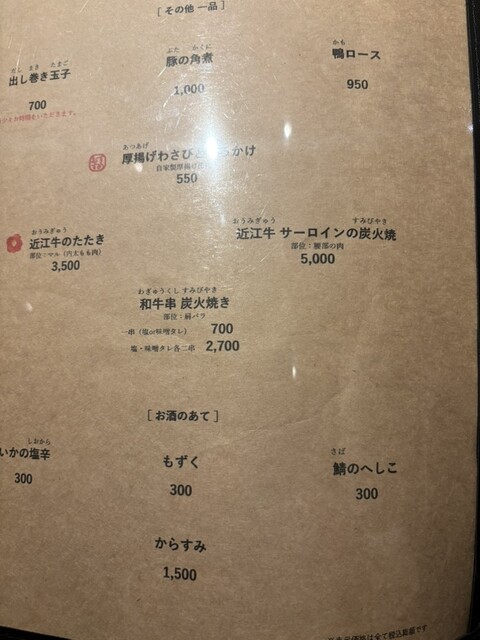 [ その他 一品 ]
だし まき たまご
出し巻き玉子
700
お時間をいただきます。
ぶた かくに
豚の角煮
1,000
かも
鴨ロース
950
あつあげ
厚揚げわさび かけ
自家製厚揚げ
550
おうみぎゅう
近江牛のたたき
部位:マル(内太もも肉)
3,500
おうみぎゅう すみびやき
近江牛 サーロインの炭火焼
部位:腰部の肉
5,000
わぎゅうくし すみびやき
和牛串 炭火焼き
部位:肩バラ
一串(塩or味噌タレ) 700
塩・味噌タレ各二串 2,700
[ お酒のあて ]
しおから
いかの塩辛
300
もずく
300
さば
鯖のへしこ
300
からすみ
1,500
価格は全て税込